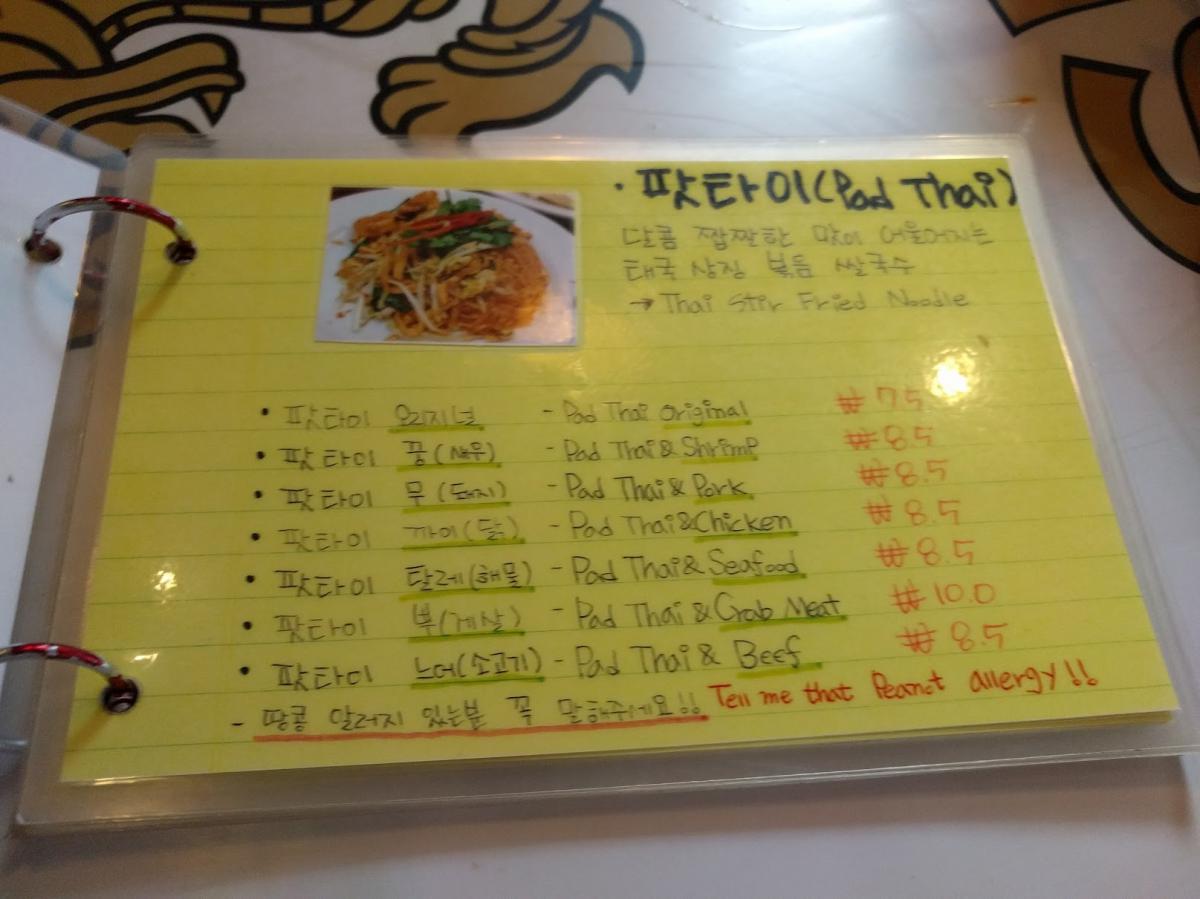 · 팟타이(Pad Thai)
달콤 짭짤한 맛이 어울어지는
태국 상징 볶음 쌀국수
→ Thai Stir Fried Noodle
• 팟타이 오리지널 - Pad Thai Original ₩ 7.5
• 팟타이 꿍(새우) - Pad Thai & Shrimp ₩ 8.5
• 팟타이 무(돼지) - Pad Thai & Pork ₩ 8.5
• 팟타이 까이(닭) - Pad Thai & Chicken ₩ 8.5
• 팟타이 탈레(해물) - Pad Thai & Seafood ₩ 8.5
• 팟타이 뿌(게살) - Pad Thai & Crab Meat ₩ 10.0
• 팟타이 느어(소고기) - Pad Thai & Beef ₩ 8.5
- 땅콩 알러지 있는분 꼭 말해주세요!! Tell me that Peanot allergy!!